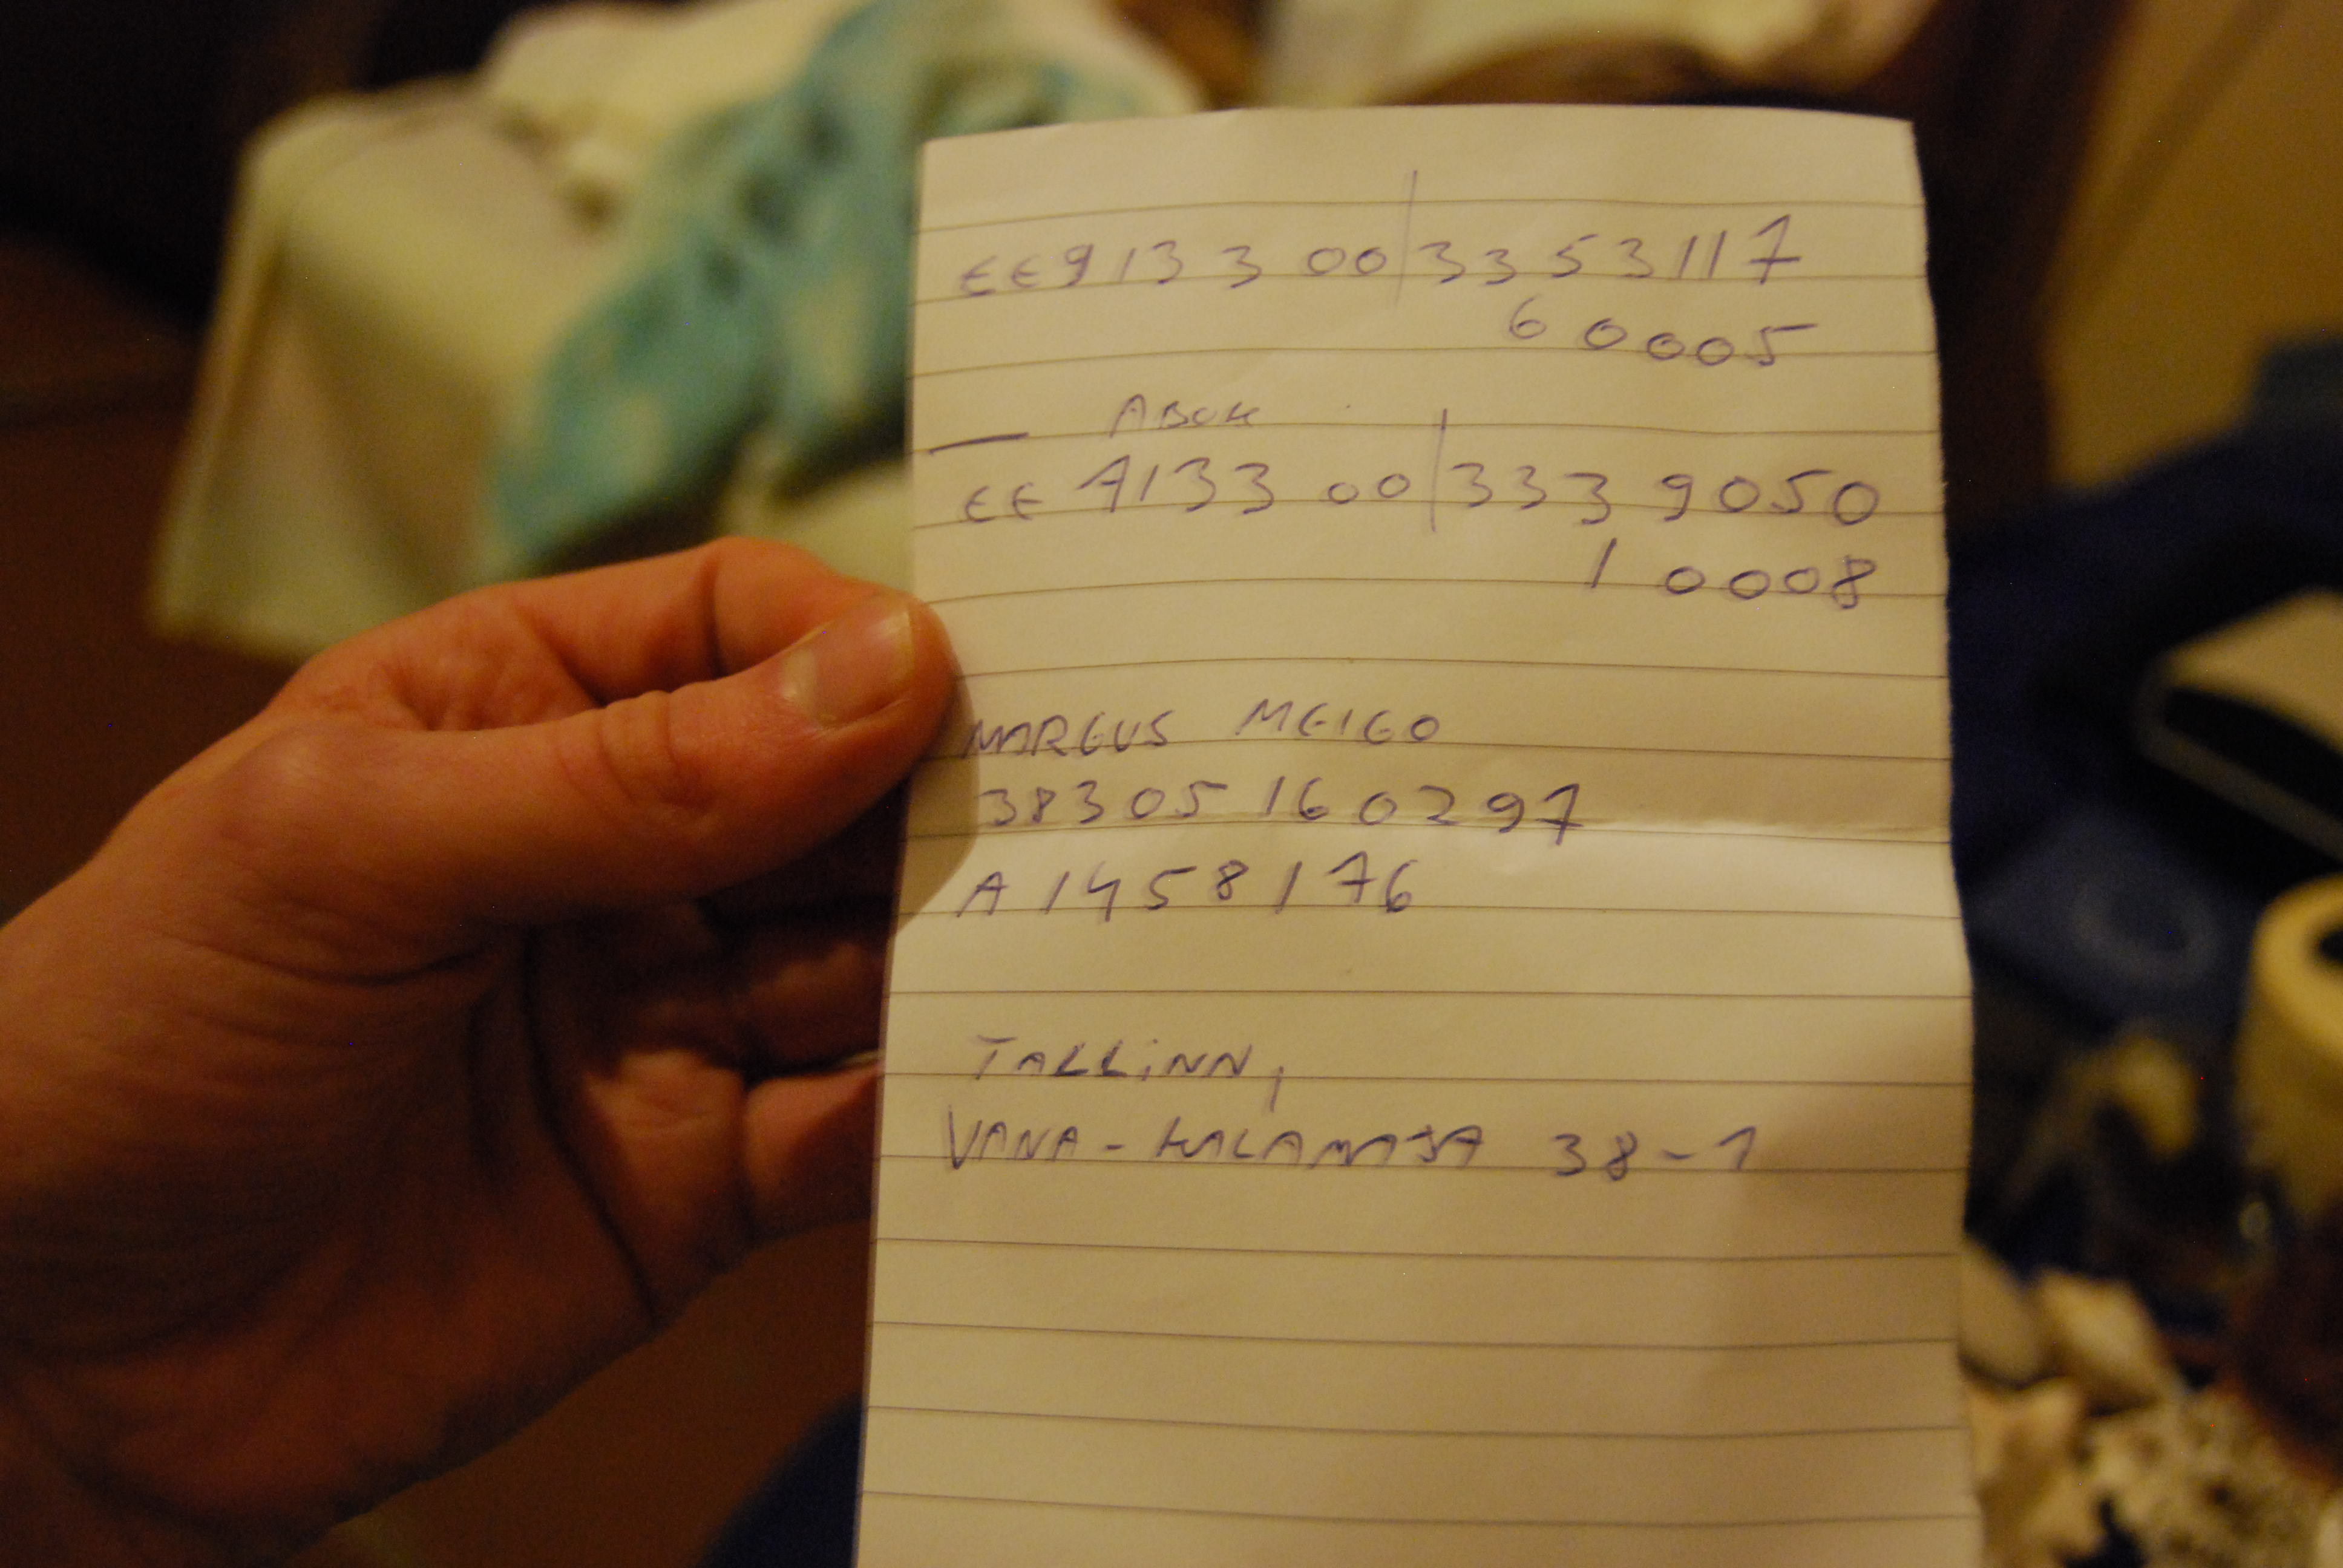 EE913300 3353117
60005
EE713300 3339050
10008
MARGUS MEIGO
38305160297
A1458176
TALLiNN,
VANA-KALAMAJA 38-1